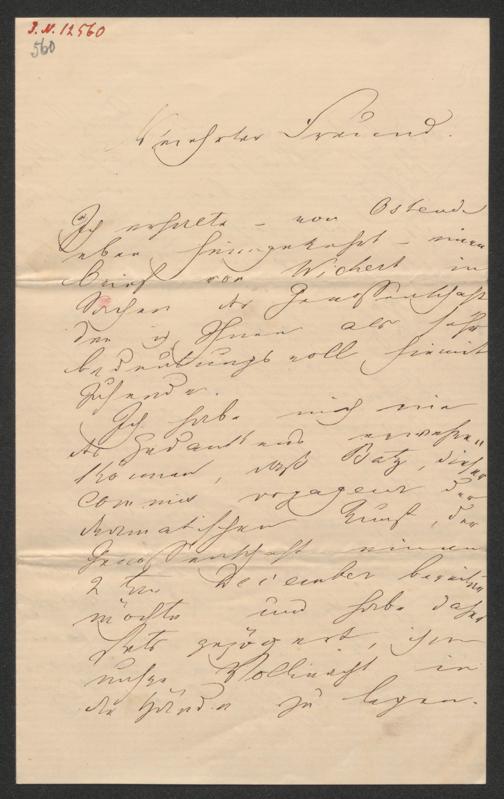 J.N. 12560
560
Verehrter Freund.
Ich erhalte – von Ostende
eben heimgekehrt – einen
Brief von Wichert in
Sachen der Genossenschaft
den ich Ihnen als sehr
bedeutungsvoll hiemit
sende.
Ich habe mich nie
des Gedankens erwehren
können, daß Batz, dieser
commis voyageur der
dramatischen Kunst, der
Genossenschaft einen
2 ten December bereiten
möchte und habe daher
stets gezögert, ihm
unsere Vollmacht in
die Hände zu legen.